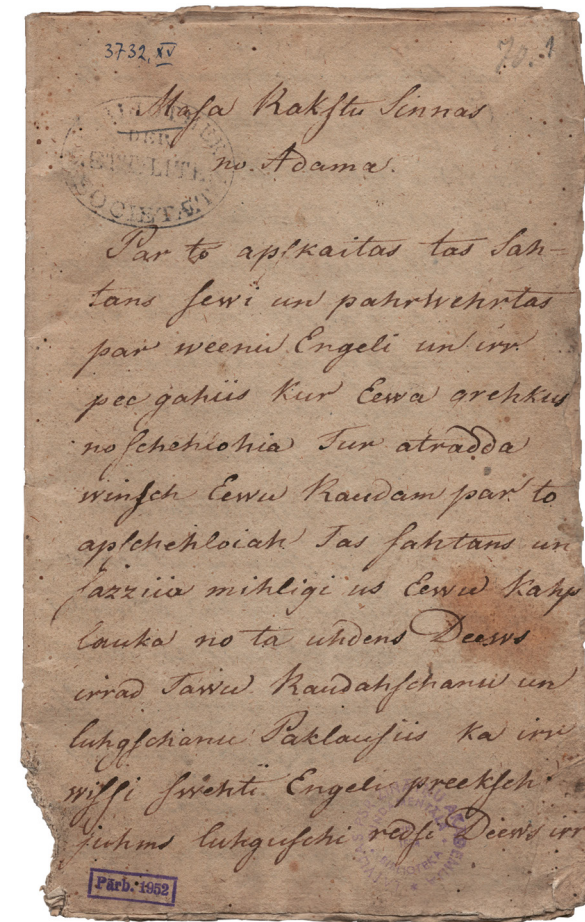 3732, XV
70. 1
Masa Rakstu Sinnas
no Adama.
DER
LITE
SOCIETÆT
Par to apskaitas tas Sah-
tans sewi un pahrwehrtas
par weenu Engeli un irr
pee gahiis Kur Eewa grehkus
noschehlohia Tur atradda
winsch Eewu Raudam par to
apschehloiah Tas sahtans un
sazziia mihligi us Eewu Kahp
lauka no ta uhdens Deews
irrad Tawu Raudahschanu un
luhgschanu Paklausiis ka irr
wissi swehti Engeli preeksch
juhms luhguschi redsi Deews irr
BIBLIOTEKA
Pārb. 1952